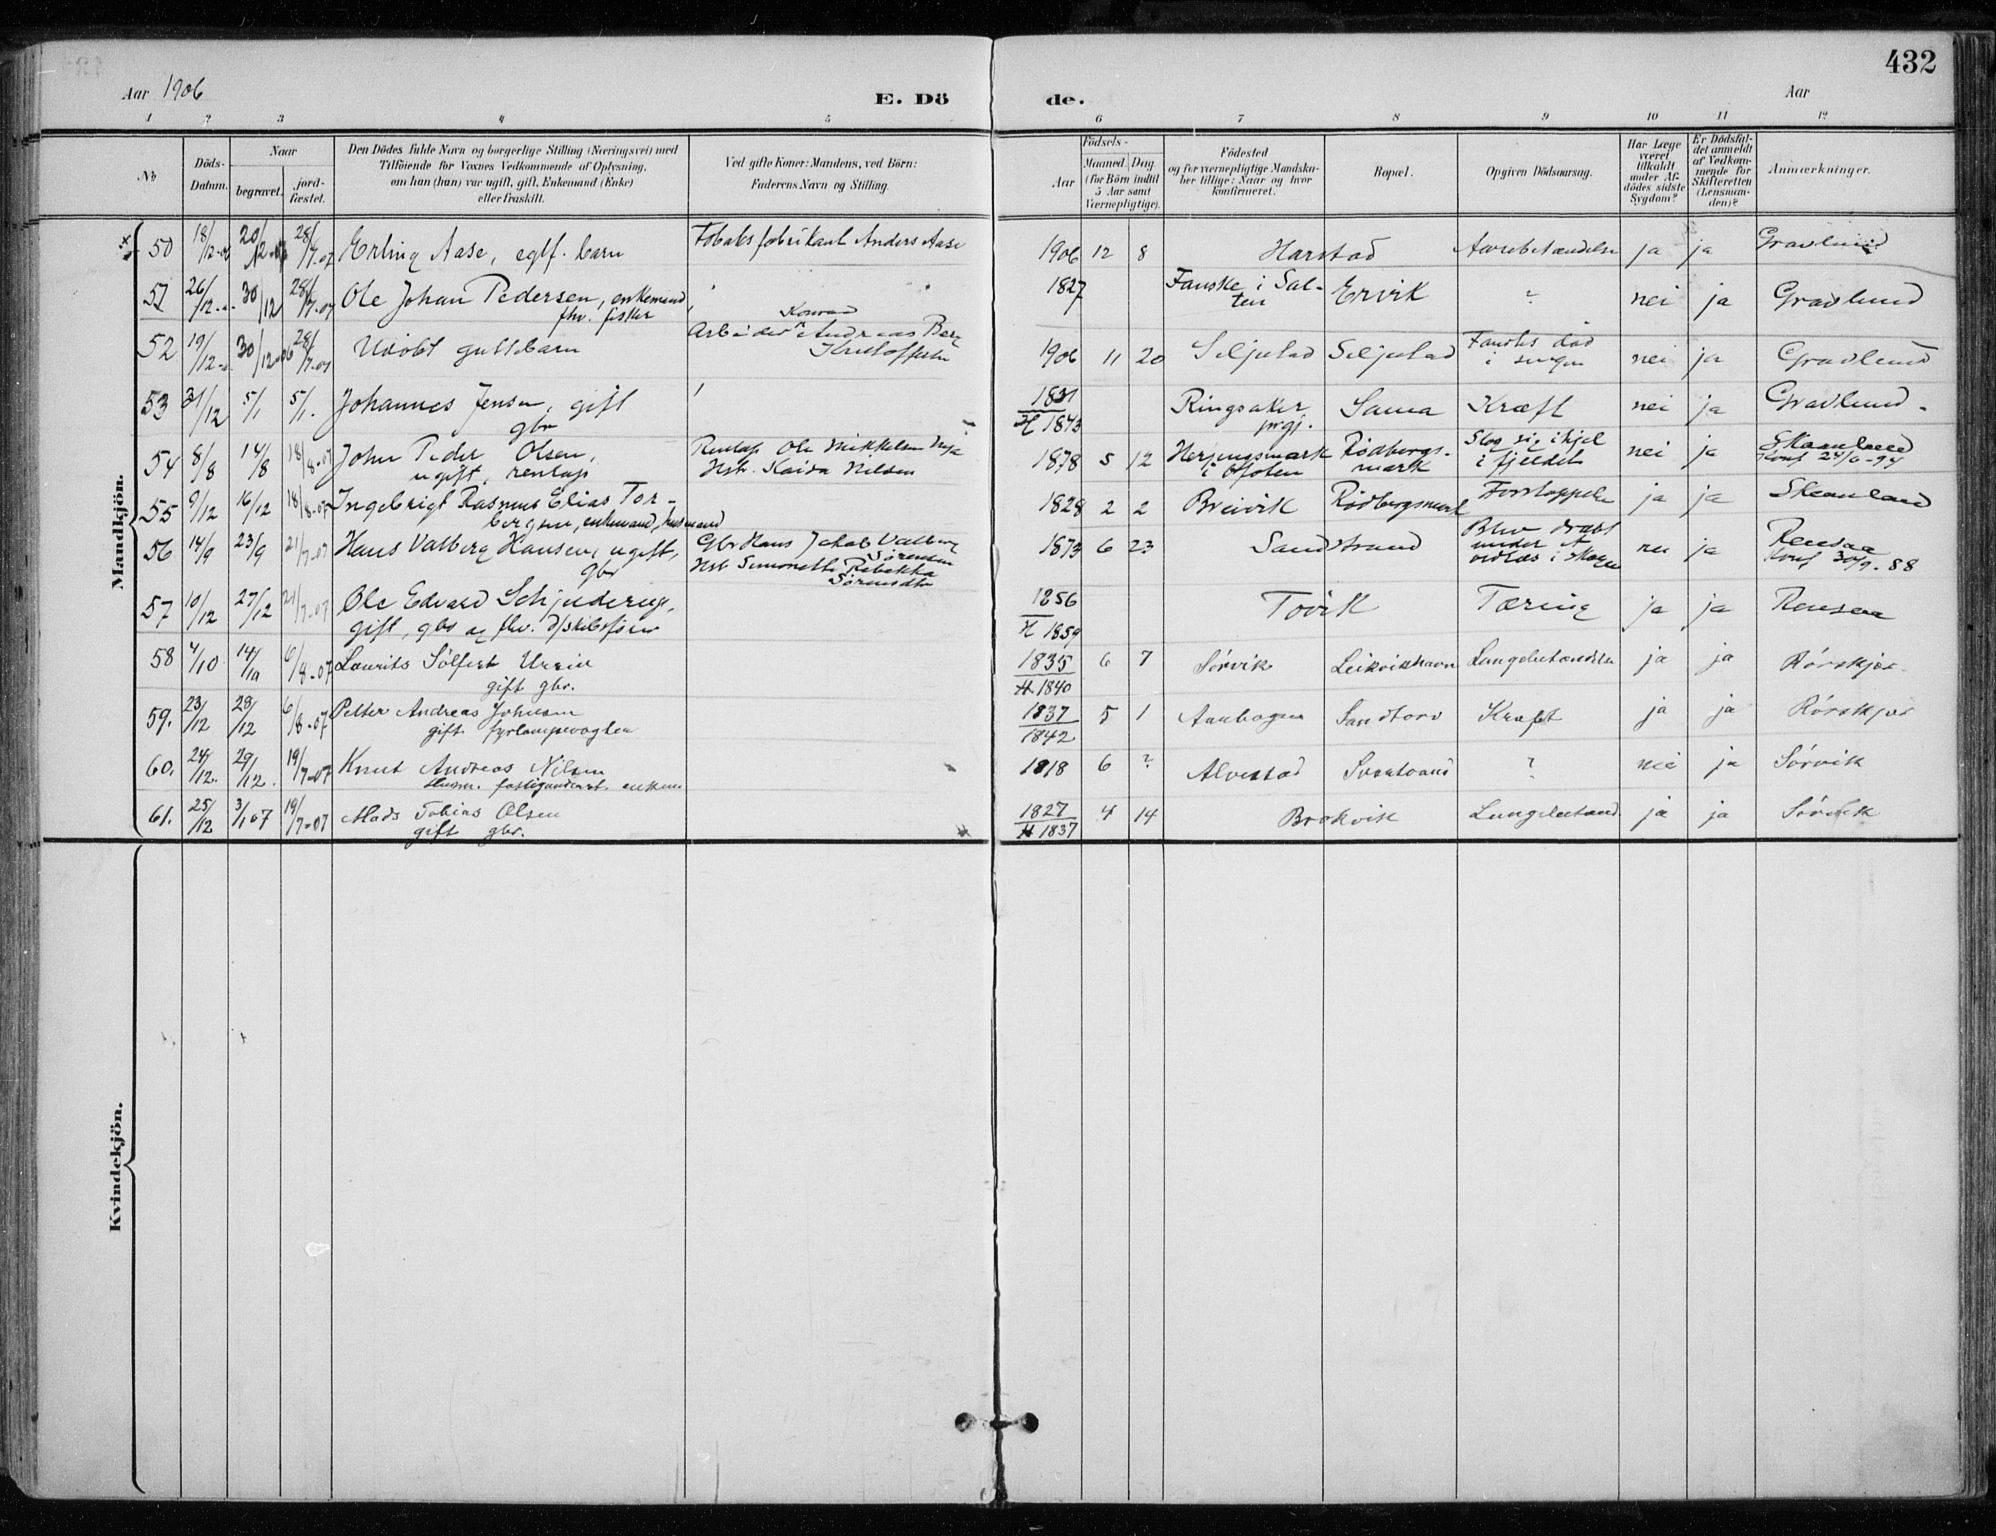 432
Aar 1906
E. Döde.
Aar
1 2 3 4 5 6 7 8 9 10 11 12
No
Döds-Datum.
Naar
begravet.
jord-fæstet.
Den Dödes fulde Navn og borgerlige Stilling (Næringsvei) med
Tilföiende for Voxnes Vedkommende af Oplysning,
om han (hun) var ugift, gift, Enkemand (Enke)
eller fraskilt.
Ved gifte Koner: Mandens, ved Börn:
Faderens Navn og Stilling.
Födsels-
Aar
Maaned. Dag.
(for Börn indtil
5 Aar samt
Værnepligtige).
Födested
og for værnepligtige Mandska-
ber tillige: Naar og hvor
konfirmeret.
Bopæl.
Opgiven Dödsaarsag.
Har Læge
været
tilkaldt
under Af-
dödes sidste
Sygdom?
Er Dödsfal-
det anmeldt
af Vedkom-
mende for
Skifteretten
(Lensman-
den)?
Anmærkninger.
Mandkjön.
50 18/12-06 20/12-06 28/7-07 Erling Aase, egtf. barn Tobaksfabrikant Anders Aase 1906 12 8 Harstad ja ja Gravlund
51 26/12 30/12 28/7-07 Ole Johan Pedersen, enkemand 1827 Fauske i Sal- Ervik ? nei ja Gravlund
fhv. fisker ten
Konrad
52 19/12 30/12-06 28/7-07 Udöbt guttebarn Arbeider Andreas Berg 1906 11 20 Seljestad Seljestad Fandtes död nei ja Gravlund
Kristoffersen i sengen
53 31/12 5/1 5/1. Johannes Jensen, gift 1831 Ringsaker Sama Kræft nei ja Gravlund.
gbr H 1843 prgj.
54 8/8 14/8 18/8-07 John Peder Olsen, Renlap Ole Mikkelsen 1878 5 12 Herjangsmark Rödbergs- Slog sig ihjel nei ja Skaanland
ugift, renlap Hst. Kaisa Nilsen i Ofoten mark i fjeldet Konf 24/6-94
55 9/12 16/12 18/8-07 Ingebrigt Rasmus Elias Tor- 1828 2 2 Breivik Rödbergsmark Forstoppelse ja ja Skaanland
bergsen, enkemand, husmand
56 14/9 23/9 21/7-07 Hans Valberg Hansen, ugift, Gbr Hans Jakob Valberg 1873 6 23 Sandstrand Blev dræbt nei ja Rensaa
gbr Sörensen under et Konf 30/9-88
Hst Simonette Rebekka vedlæs i skogen
Sörensdtr
57 10/12 27/12 21/7-07 Ole Edvard Schjelderup, 1856 Tovik Tæring ja ja Rensaa
gift, gbr og fhv. d/skibsförer H 1859
58 4/10 14/10 6/8-07 Laurits Sölfest 1835 6 7 Sörvik Leikvikhavn Lungebetændelse ja ja Rörskjær.
gift gbr. H 1840
59. 23/12 28/12 6/8-07 Petter Andreas Johnsen 1837 5 1 Aunbogen Sandtorv Kræft ja ja Rörskjær
gift. fyrlampevogter 1842
60. 24/12. 29/12. 19/7-07 Knut Andreas Nilsen 1818 6 ? Alvestad ? nei ja Sörvik
Husm. fattigunderst. enkem
61. 25/12 3/1 07 19/7-07 Mads Tobias Olsen 1827 4 14 Brokvik Lungebetænd. ja ja Sörvik
gift gbr. H 1837
Kvindekjön.